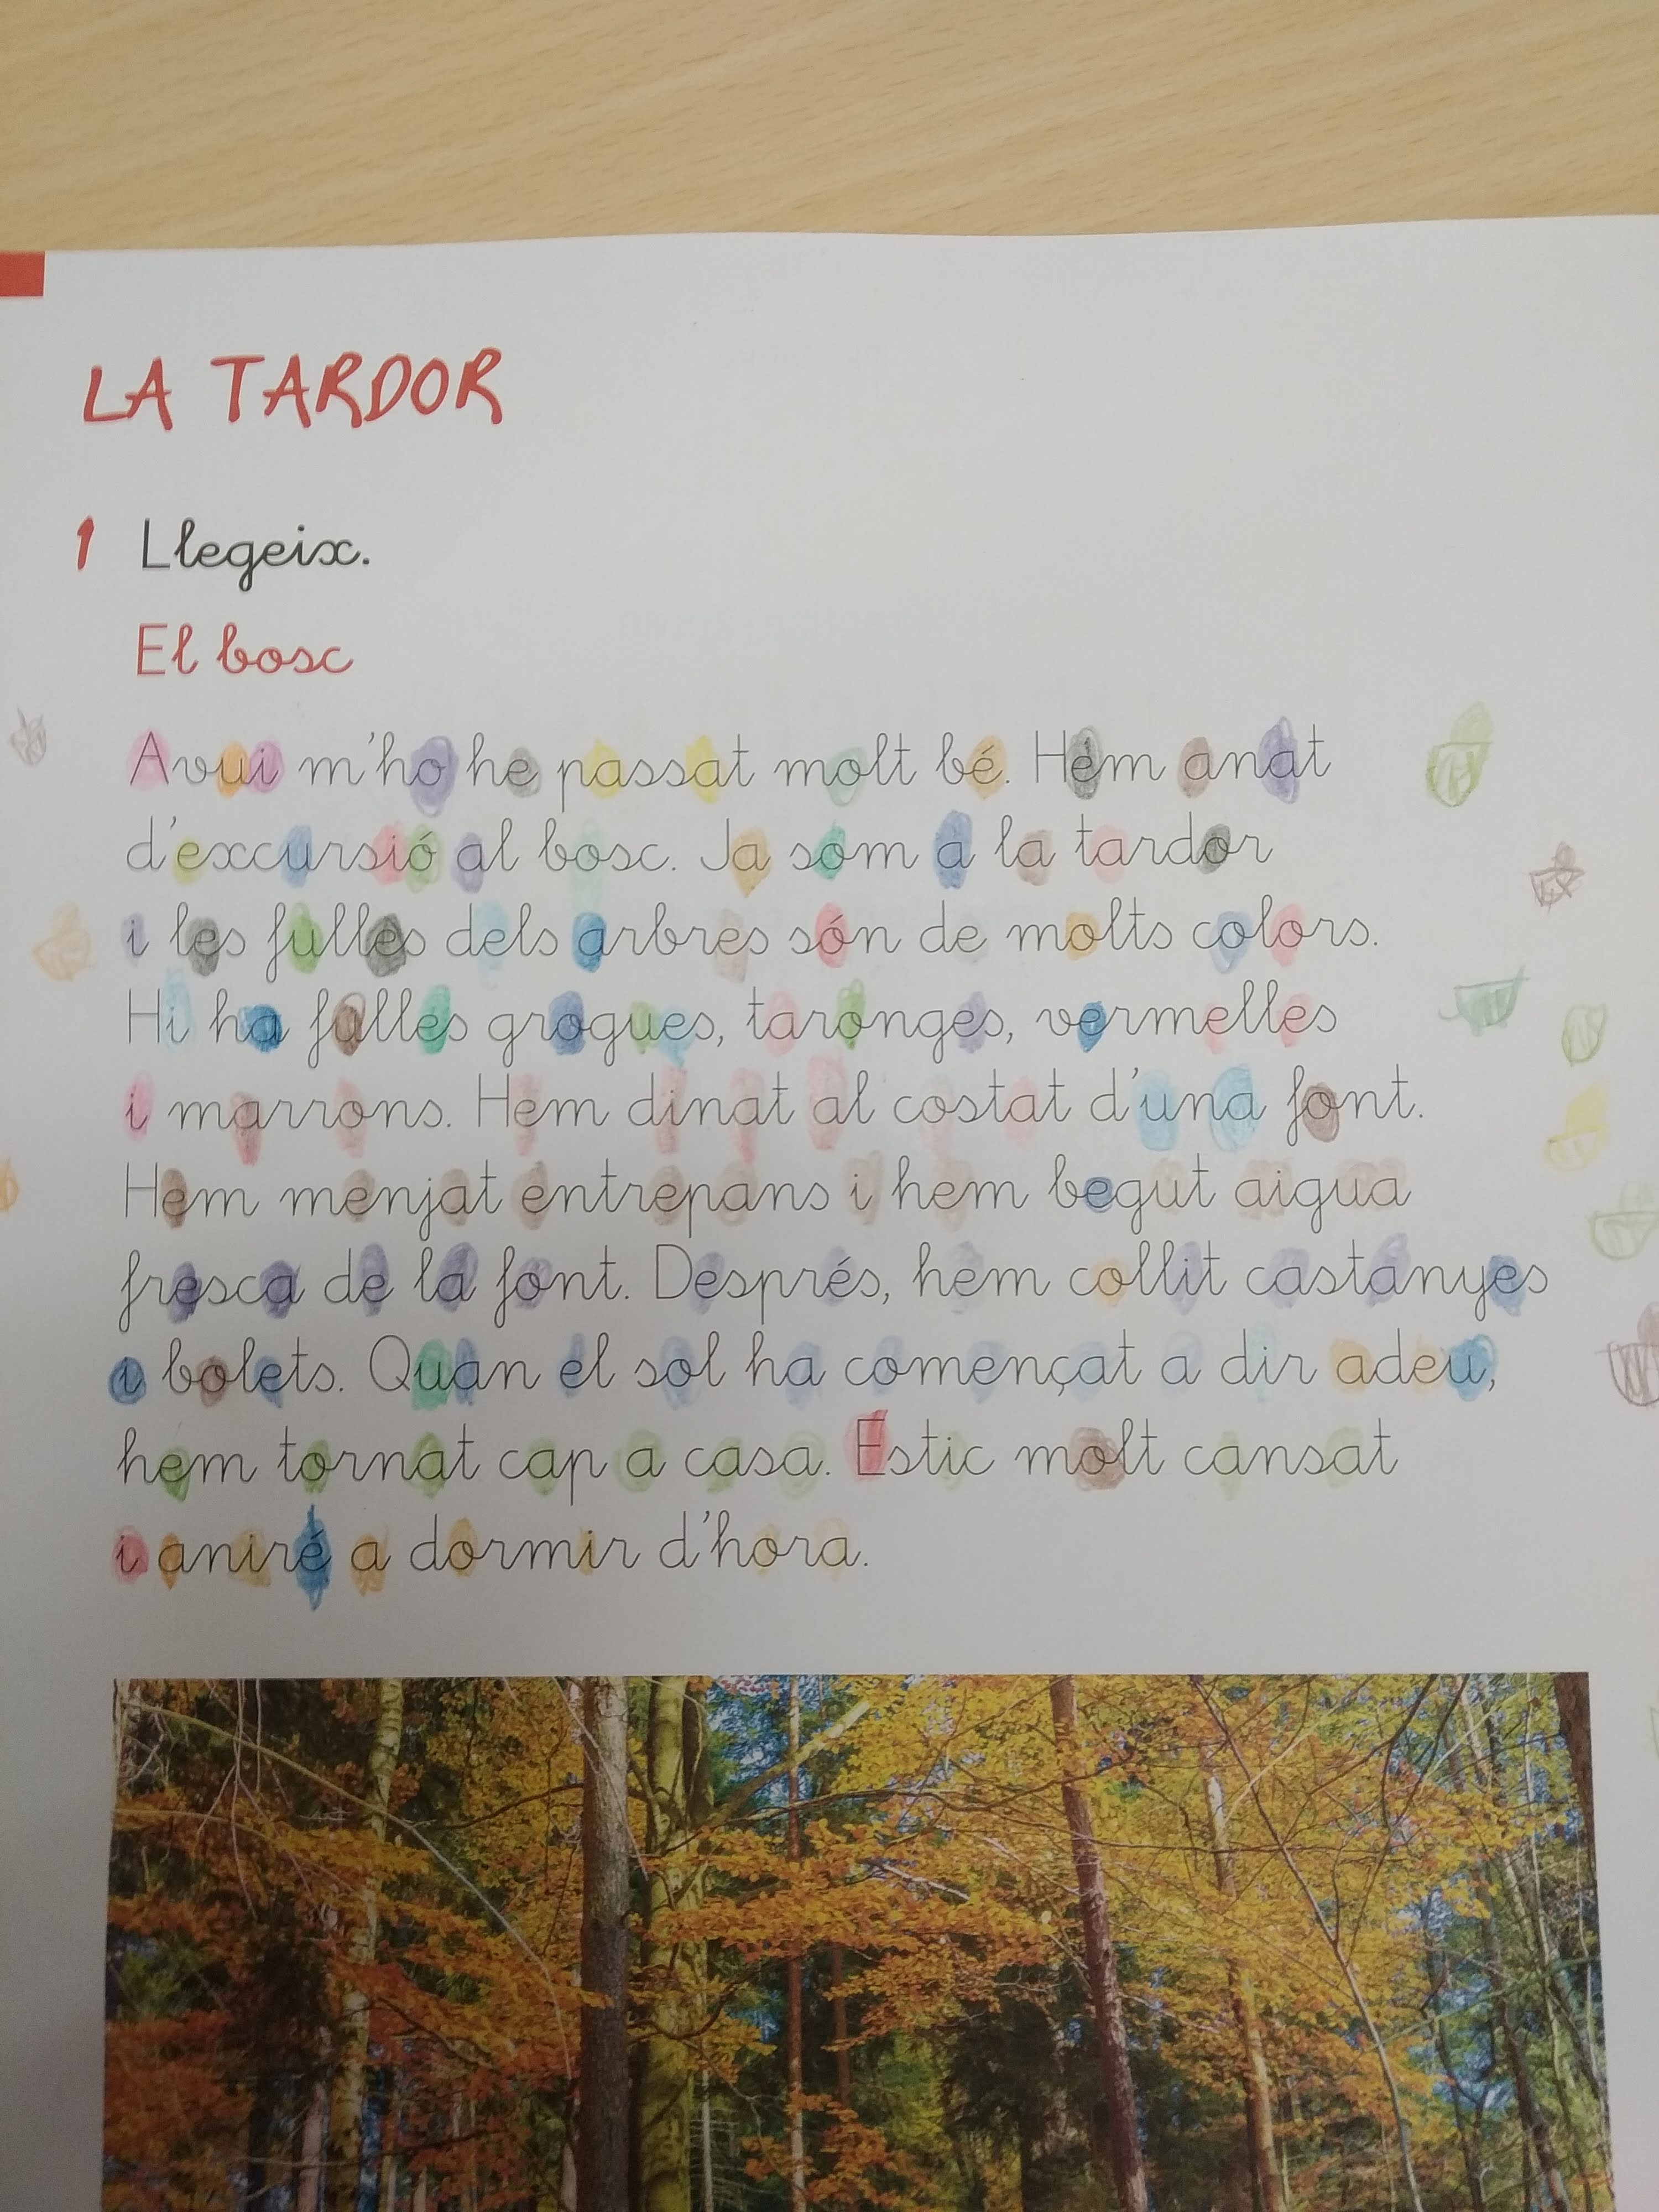 LA TARDOR
1 Llegeix.
El bosc
Avui m'ho he passat molt bé. Hem anat
d'excursió al bosc. Ja som a la tardor
i les fulles dels arbres són de molts colors.
Hi ha fulles grogues, taronges, vermelles
i marrons. Hem dinat al costat d'una font.
Hem menjat entrepans i hem begut aigua
fresca de la font. Després, hem collit castanyes
i bolets. Quan el sol ha començat a dir adeu,
hem tornat cap a casa. Estic molt cansat
i aniré a dormir d'hora.